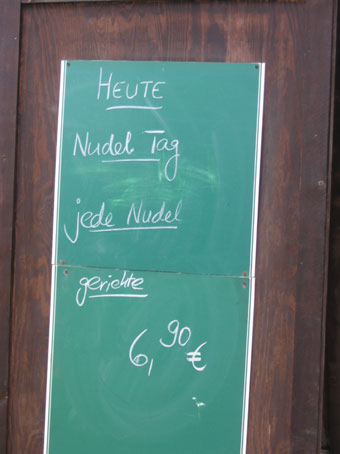 HEUTE
Nudel Tag
jede Nudel
gerichte
6,90€